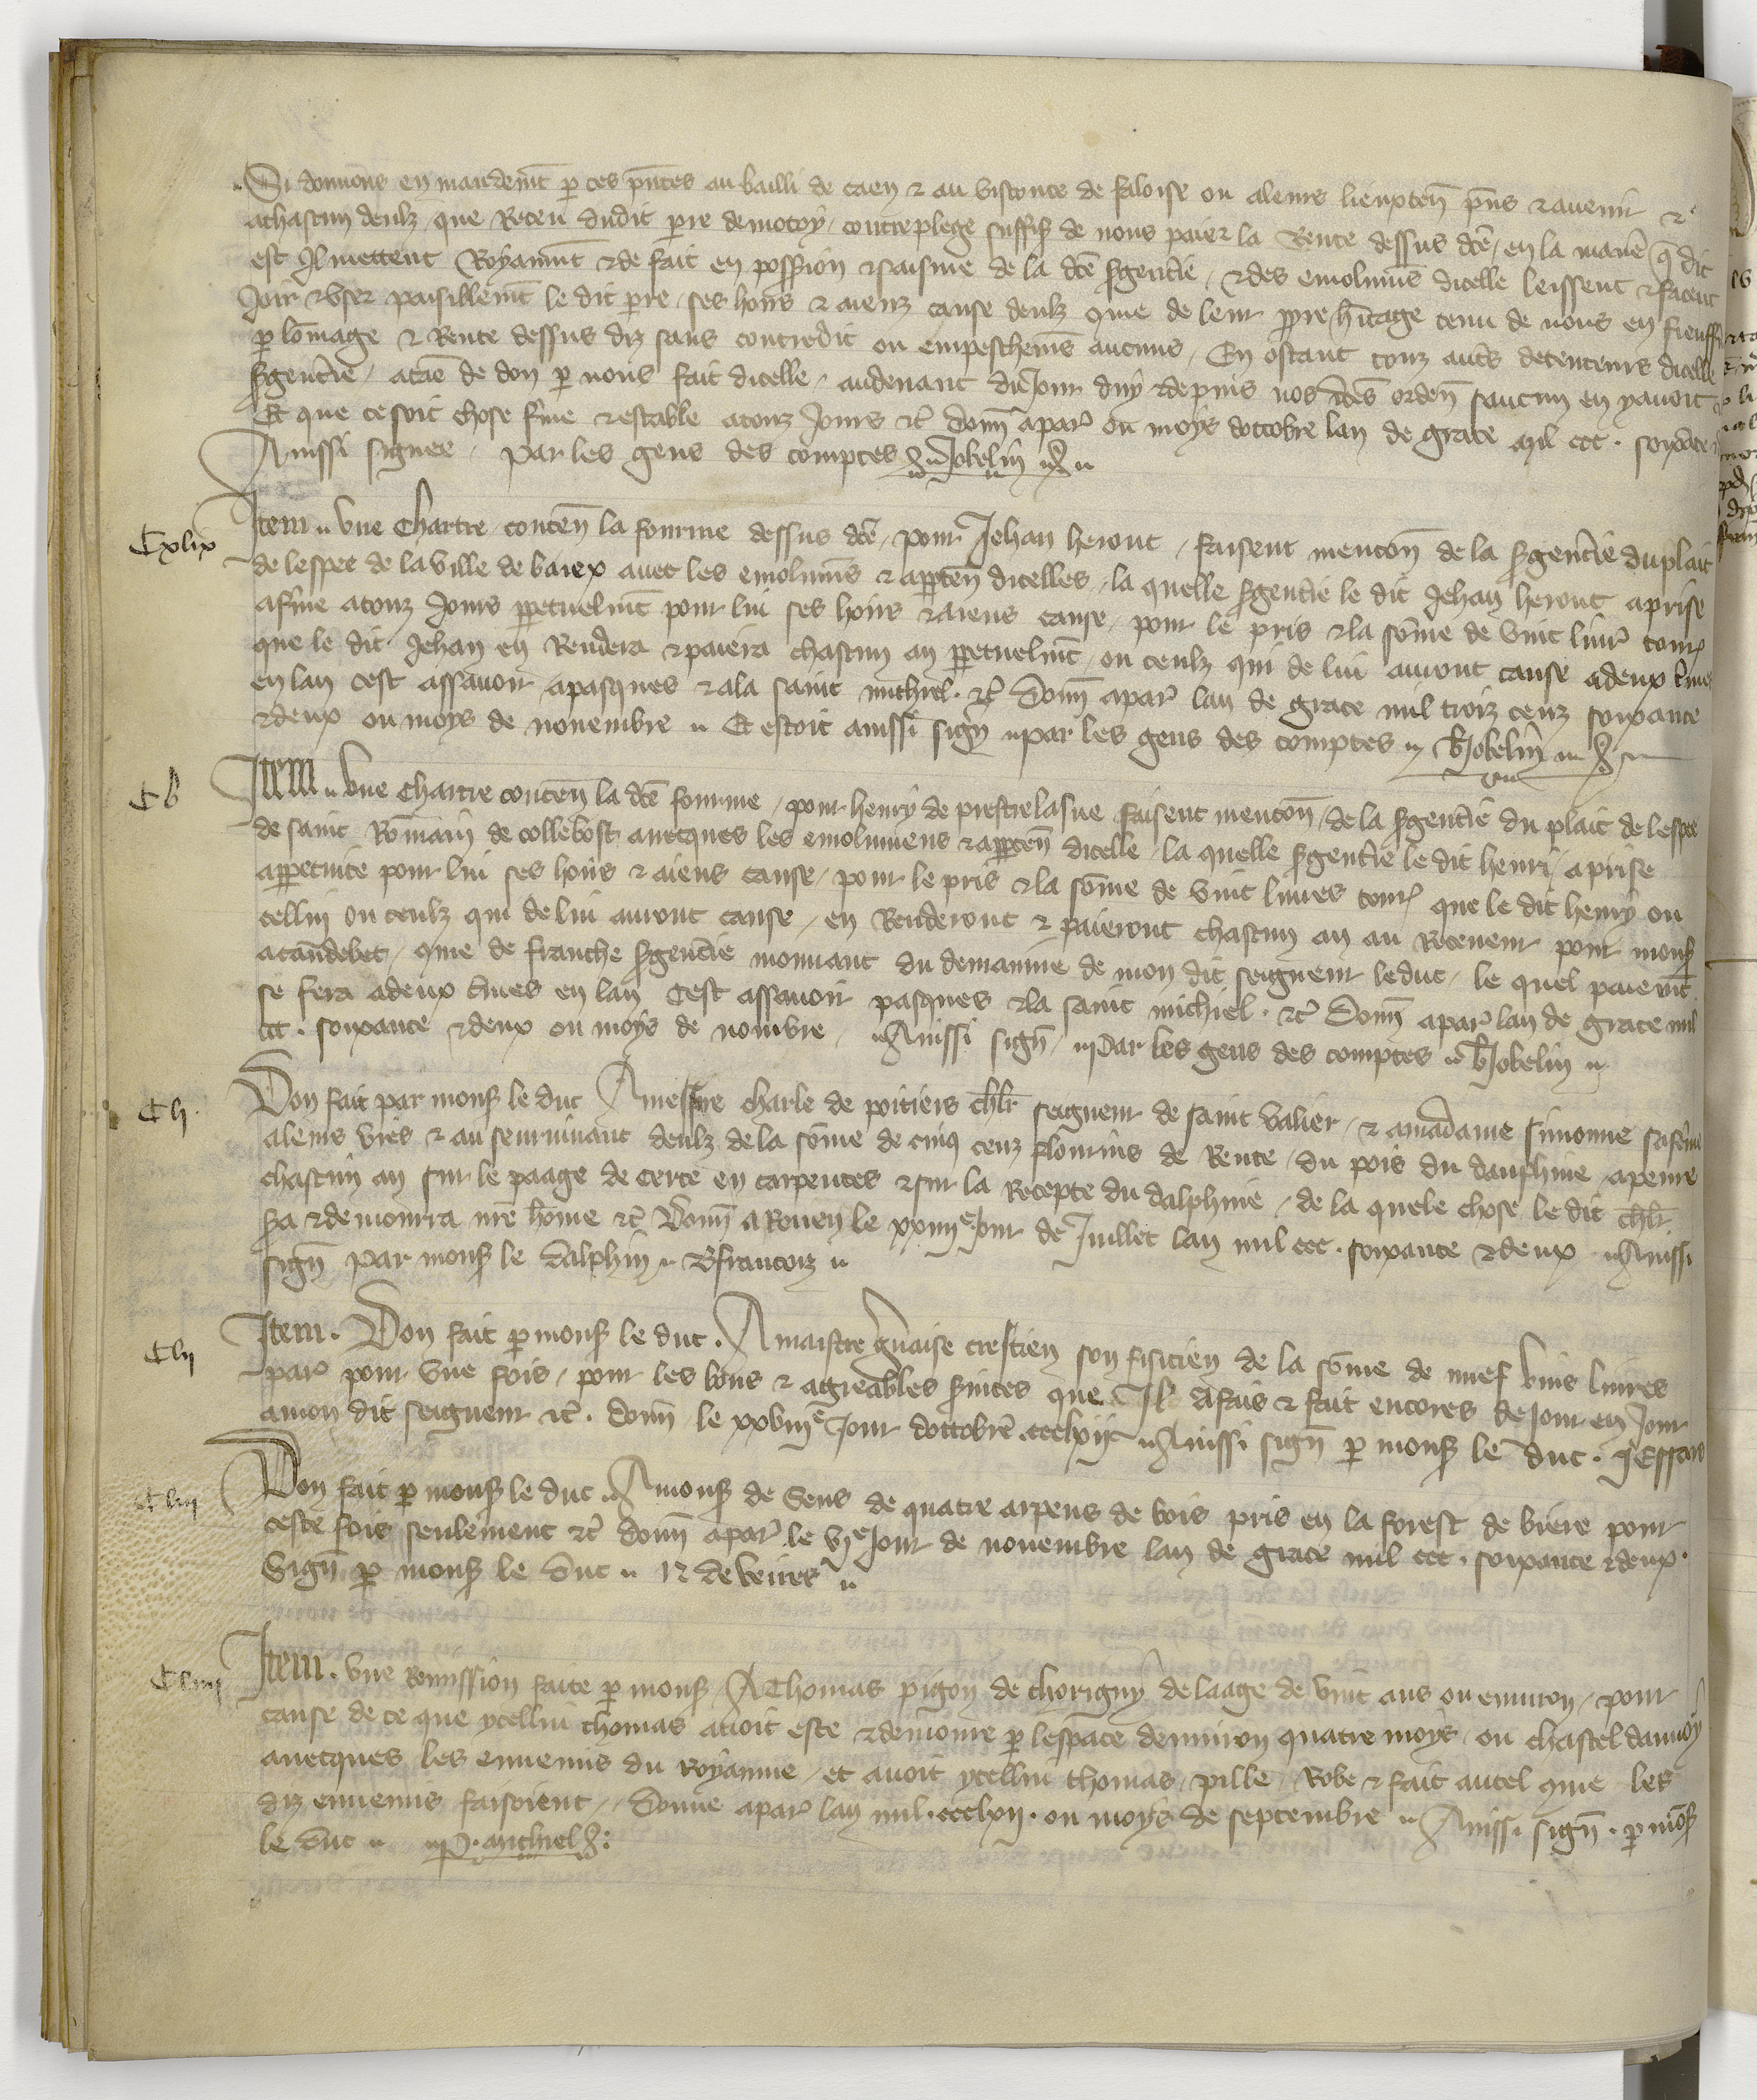 Si donnons en mandemt p ces pntes au bailli de caen & au visconte de faloise ou aleurs lieuxten pns & avenir &
achascun deulz que Receu dudit pre demotoy contreplege suffis de nous paier la Rente dessus dce en la maniere q dit
est Ilmettent Royaumt & de fait en possession & saisine de la dce sgentie & des emolumens dicelle leissent & facent
Joir & user paisiblemt le dit pre ses hoirs & aienz cause deulz come de leur ppre heritage tenu de nous en fieuffe
p lommage & Rente dessus diz sans contredit ou empeschems aucuns En ostant touz autes detenteurs dicelle
sgentie acāe de don p nous fait dicelle audevant du Jour duy depuis nos dces orden saucun en yavoit
Et que ce soit chose ferme & estable atouz Jours &c donn apar ou moys doctobre lan de grace mil ccc soixante
Ainssi signee par les gens des comptes Jobelin
Cxlix
Item une Chartre conten la fourme dessus dce pour Jehan heront faisent mencon de la sgentie duplait
de lespee de la ville de baiex avec les emolumes & apparten dicelles la quelle sgentie le dit Jehan heront aprise
aferme atouz Jours ppetuelmt pour lui ses hoirs & aiens cause pour le pris & la some de vint livr tour
que le dit Jehan en Rendera & paiera chascun an ppetuelmt ou ceulz qui de lui auront cause adeux tmes
en lan cest assavoir apasques & ala saint michiel &c Donn apar lan de grace mil troiz cenz soixante
& deux ou moys de novembre Et estoit ainssi sign par les gens des comptes Jobelin
Cl
Item une Chartre conten la dce fourme pour henry de prestrelasne faisent mencon de la sgentie du plait de lespee
de saint Romain de collebost avecques les emolumens & apparten dicelle la quelle sgentie le dit henri aprise
appetuite pour lui ses hoirs & aiens cause pour le pris & la some de vint livres tour que le dit henry ou
cellui ou ceulz qui de lui auront cause en Renderont & paieront chascun an au Receveur pour mons
acaudebec come de franche sgentie mouvant du demainne de mon dit seigneur leduc le quel paiemt
se fera adeux tmes en lan Cest assavoir pasques & la saint michiel &c Donn apar lan de grace mil
ccc soixante & deux ou moys de novbre Ainssi sign Par les gens des comptes Jobelin
Cli
Don fait par mons le duc Amessire charle de poitiers chlr seigneur de saint valier & amadame simonne safeme
aleurs vies & au seurvivant deulz de la some de cinq cenz flourins de Rente du pois du dauphine apenre
chascun an sur le paage de certe en carpentes & sur la Recepte du dalphine de la quele chose le dit chlr
sa & demourra nre home &c Donn a Rouen le xxiiije Jour de Juillet lan mil ccc soixante & deux Ainssi
sign Par mons le Dalphin B francoiz
Clij
Item Don fait p mons le duc A maistre gvaise crestien son fisicien de la some de nuef vins livres
par pour une fois pour les bons & agreables svices que Il afais & fait encores de Jour en Jour
amon dit seigneur &c donn le xxviije Jour doctobre ccclxij Ainssi sign p mons le duc
Cliij
Don fait p mons le duc A mons de Sens de quatre arpens de bois pris en la forest de biere pour
ceste fois seulement &c donn apar le vje Jour de novembre lan de grace mil ccc soixante & deux
Sign p mons le Duc de veires
Cliiij
Item une Remission faite p mons A Thomas pigon de thorigny de laage de vint ans ou environ pour
cause de ce que ycellui thomas avoit este & demoure p lespace denviron quatre moys ou chastel daunoy
avecques les ennemis du Royaume et avoit ycellui thomas pille Robe & fait autel come les
diz ennemis faisoient Donne apar lan mil ccclxij ou moys de septembre Ainssi sign p mons
le Duc P michiel